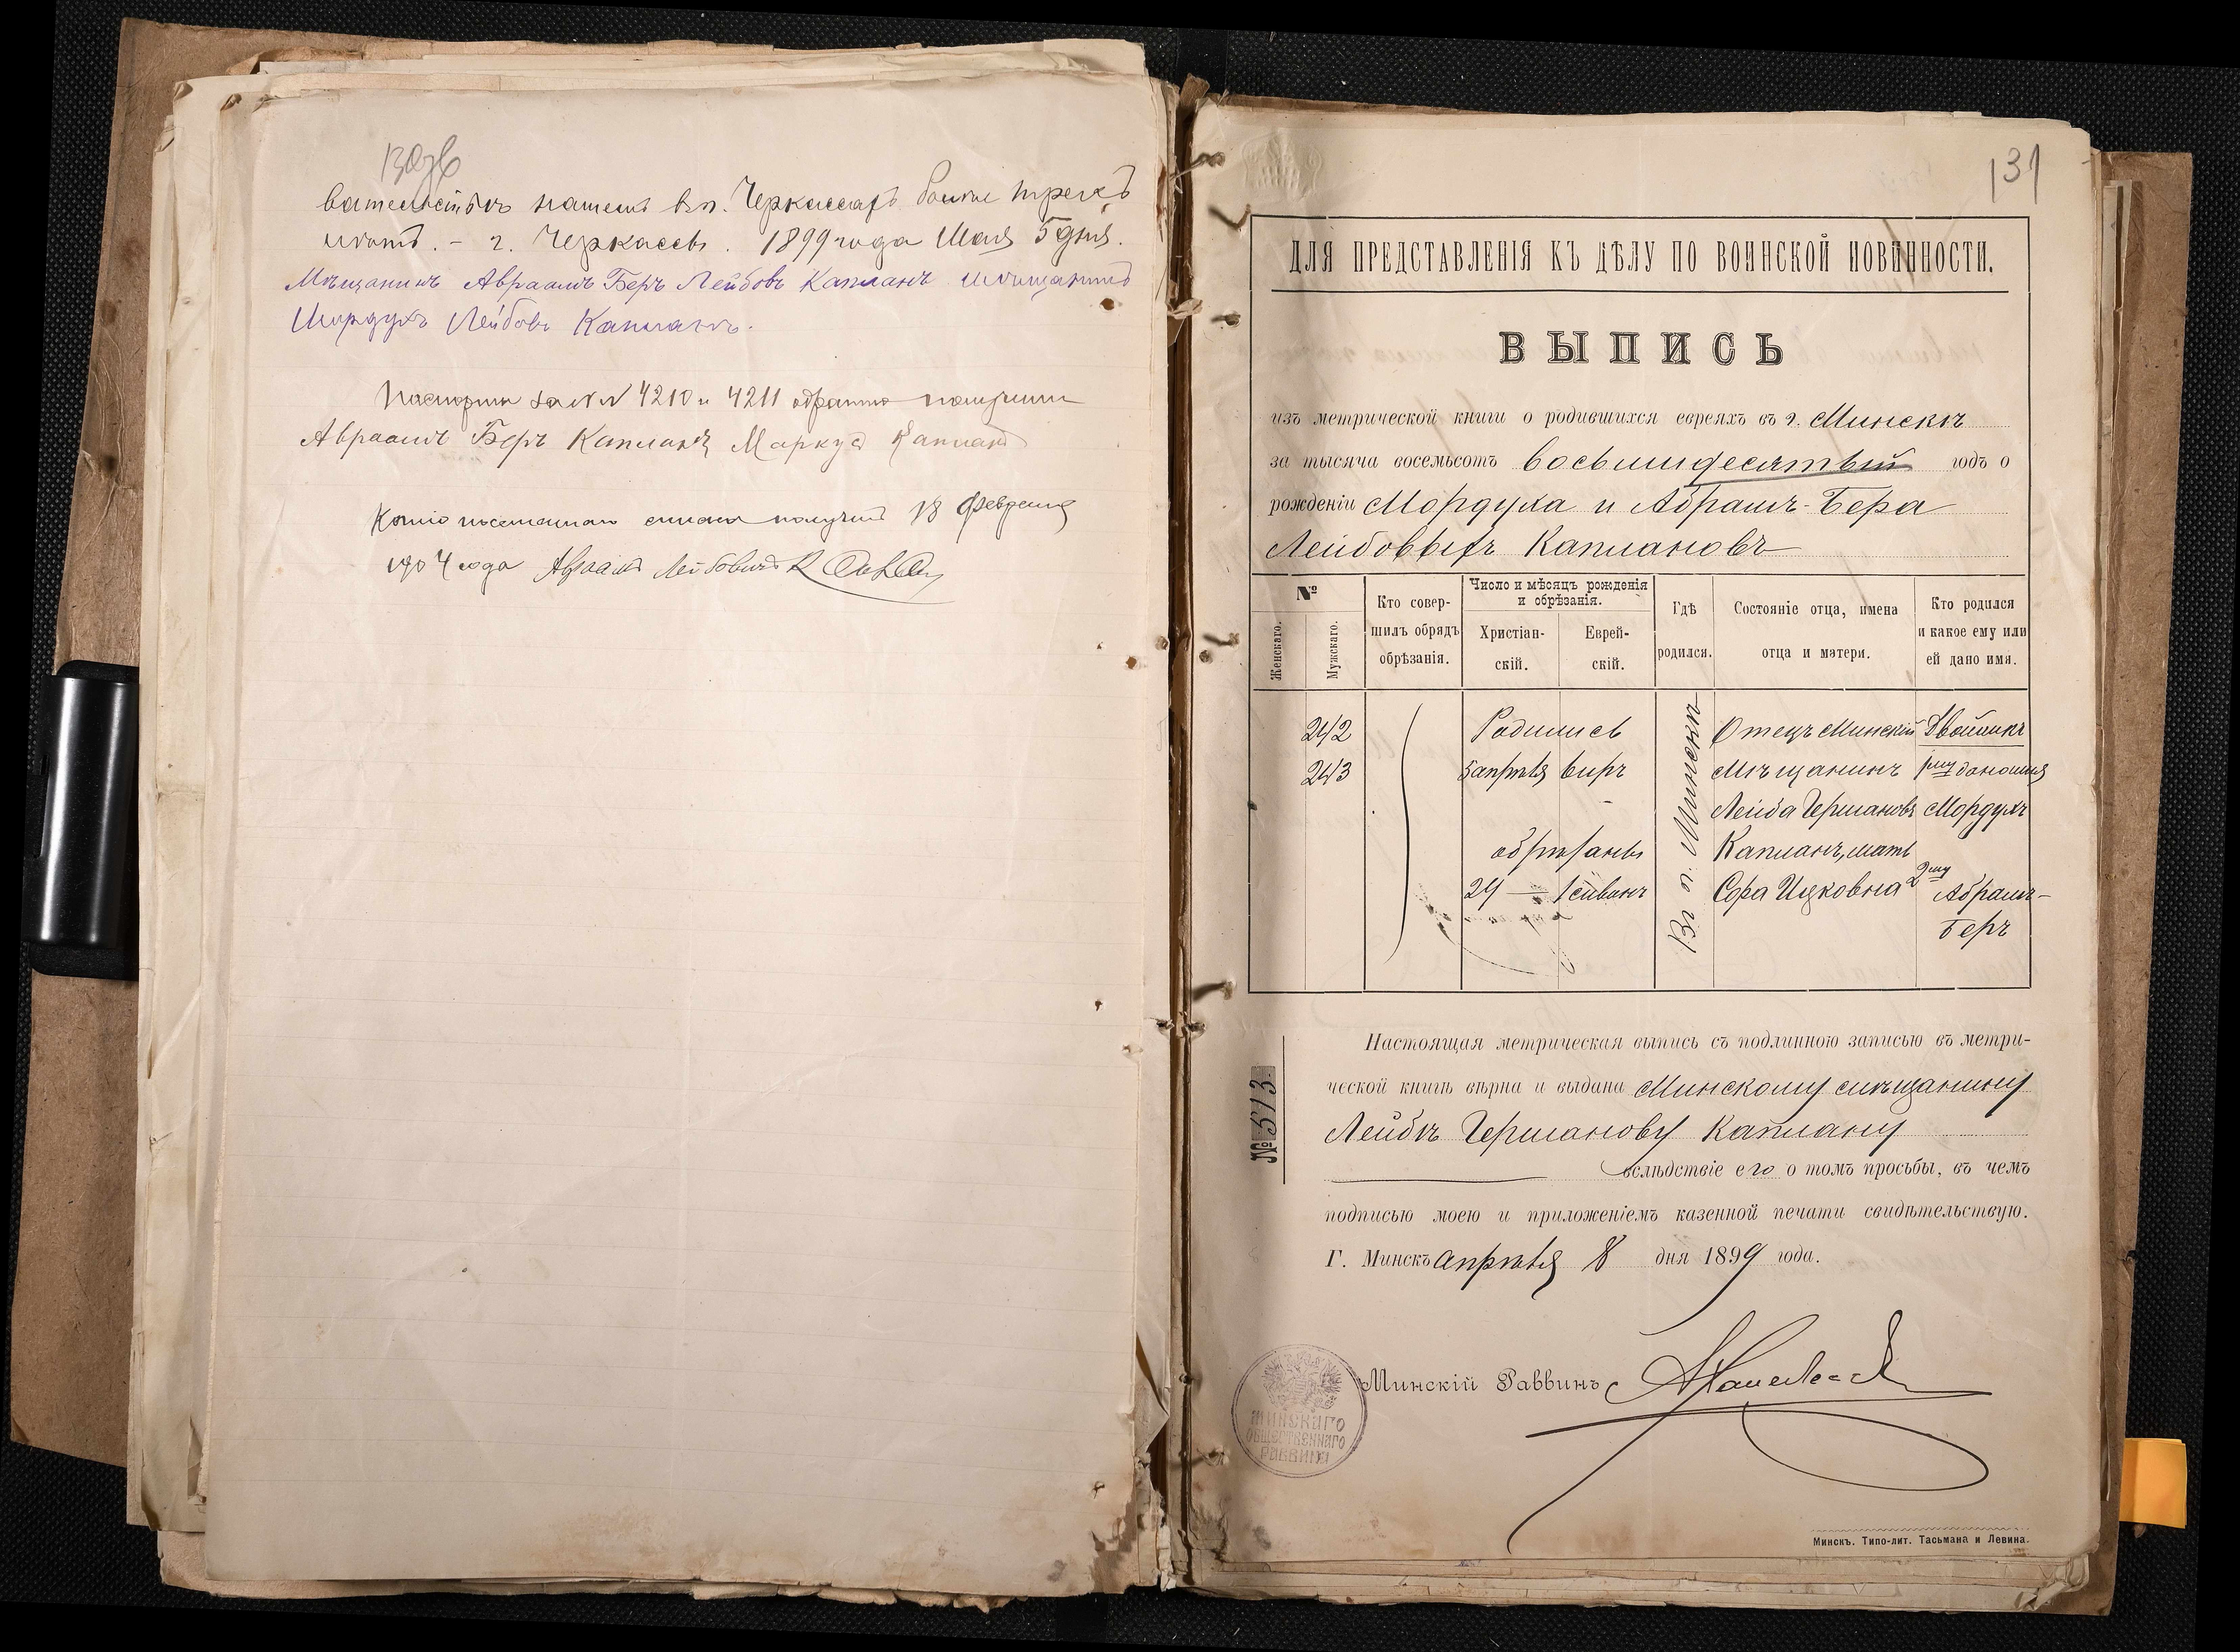 130об
вательствъ нашемъ въ г. Черкассахъ болѣе трехъ
лѣтъ. – г. Черкассы. 1899 года Мая 5 дня.
Мѣщанинъ Авраамъ Беръ Лейбовъ Капланъ мѣщанинъ
Мордухъ Лейбовъ Капланъ.
Паспорты за №№ 4210 и 4211 обратно получили
Авраамъ Беръ Капланъ Маркусъ Капланъ
Копію посемейнаго списка получилъ 18 февраля
1904 года Авраамъ Лейбовичъ Капланъ
131
ДЛЯ ПРЕДСТАВЛЕНІЯ КЪ ДѢЛУ ПО ВОИНСКОЙ ПОВИННОСТИ.
ВЫПИСЬ
изъ метрической книги о родившихся евреяхъ въ г. Минскѣ
за тысяча восемьсотъ восьмидесятый годъ о
рожденіи Мордуха и Абрамъ-Бера
Лейбовыхъ Каплановъ
№
Женскаго.
Мужскаго.
Кто совер-
шилъ обрядъ
обрѣзанія.
Число и мѣсяцъ рожденія
и обрѣзанія.
Христіан-
скій.
Еврей-
скій.
Гдѣ
родился.
Состояніе отца, имена
отца и матери.
Кто родился
и какое ему или
ей дано имя.
242
243
Родились
5 апрѣля
обрѣзаны
24 — 1 сиванъ
Въ г. Минскѣ
Отецъ Минскій
мѣщанинъ
Лейба Гершановъ
Капланъ, мать
Сора Ицковна
Двойники
1му дано имя
Мордухъ
2му
Абрамъ-
Беръ
Настоящая метрическая выпись съ подлинною записью въ метри-
ческой книгѣ вѣрна и выдана Минскому мѣщанину
Лейбѣ Гершанову Каплану
вслѣдствіе его о томъ просьбы, въ чемъ
подписью моею и приложеніемъ казенной печати свидѣтельствую.
№ 513
Г. Минскъ апрѣля 8 дня 1899 года.
Минскій Раввинъ
МИНСКАГО
ОБЩЕСТВЕННАГО
РАВВИНА
Минскъ. Типо-лит. Тасьмана и Левина.